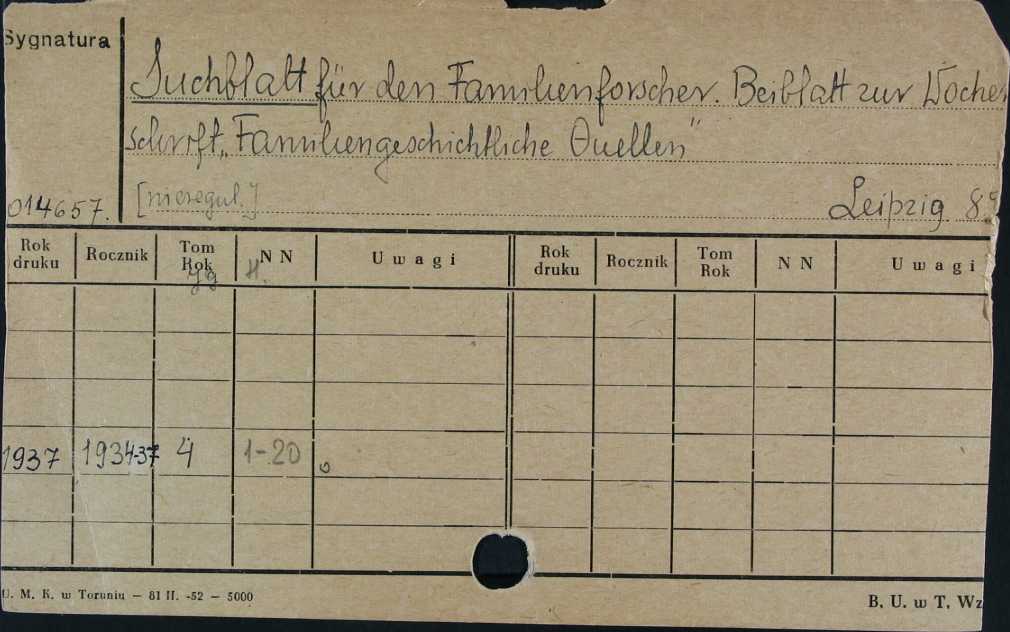 Sygnatura
Suchblatt für den Familienforscher. Beiblatt zur Wochen
schrift „Familiengeschichtliche Quellen"
014657. [nieregul.] Leipzig 8°
Rok druku Rocznik Tom Rok Jg N N H. Uwagi Rok druku Rocznik Tom Rok N N Uwagi
1937 1934-37 4 1-20
U. M. K. w Toruniu — 81 II. -52 — 5000 B. U. w T. Wz